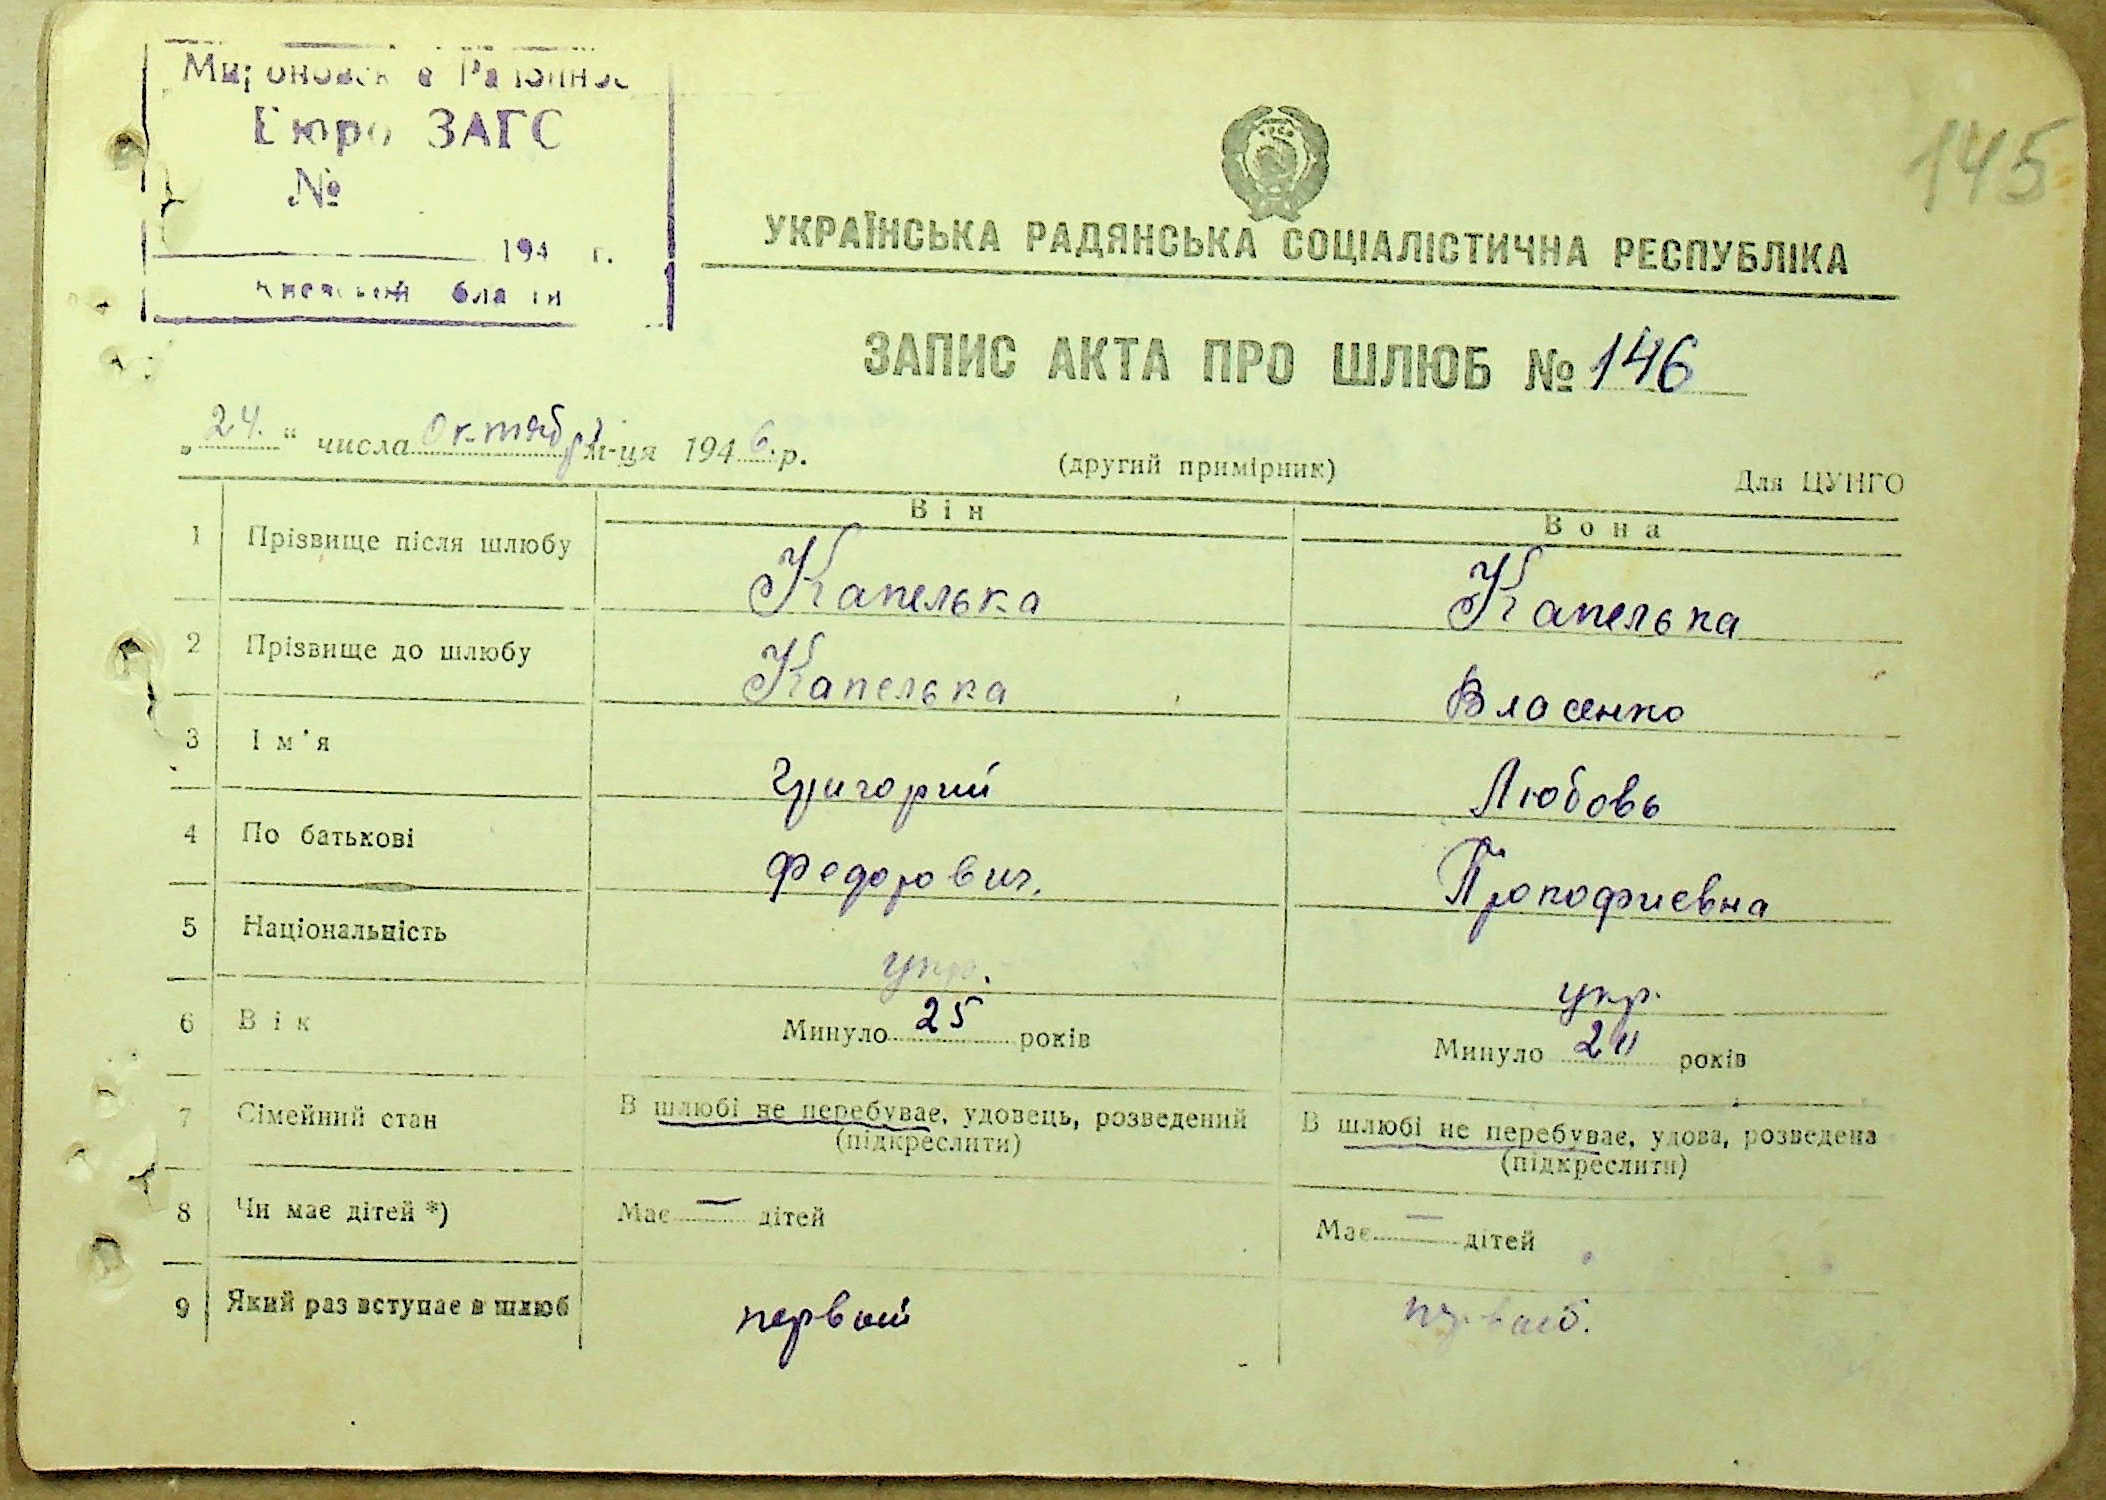 Бюро ЗАГС
№
194 г.
145
УКРАЇНСЬКА РАДЯНСЬКА СОЦІАЛІСТИЧНА РЕСПУБЛІКА
ЗАПИС АКТА ПРО ШЛЮБ № 146
„24.“ числа октября м-ця 1946.р.
(другий примірник)
Для ЦУНГО
Він
Вона
1 Прізвище після шлюбу Капелька Капелька
2 Прізвище до шлюбу Капелька Власенко
3 Ім'я Григорий Любовь
4 По батькові Федорович. Прокофиевна
5 Національність укр. укр.
6 Вік Минуло 25 років Минуло років
7 Сімейний стан В шлюбі не перебуває, удовець, розведений В шлюбі не перебуває, удова, розведена
(підкреслити) (підкреслити)
8 Чи має дітей *) Має — дітей Має — дітей
9 Який раз вступає в шлюб первый